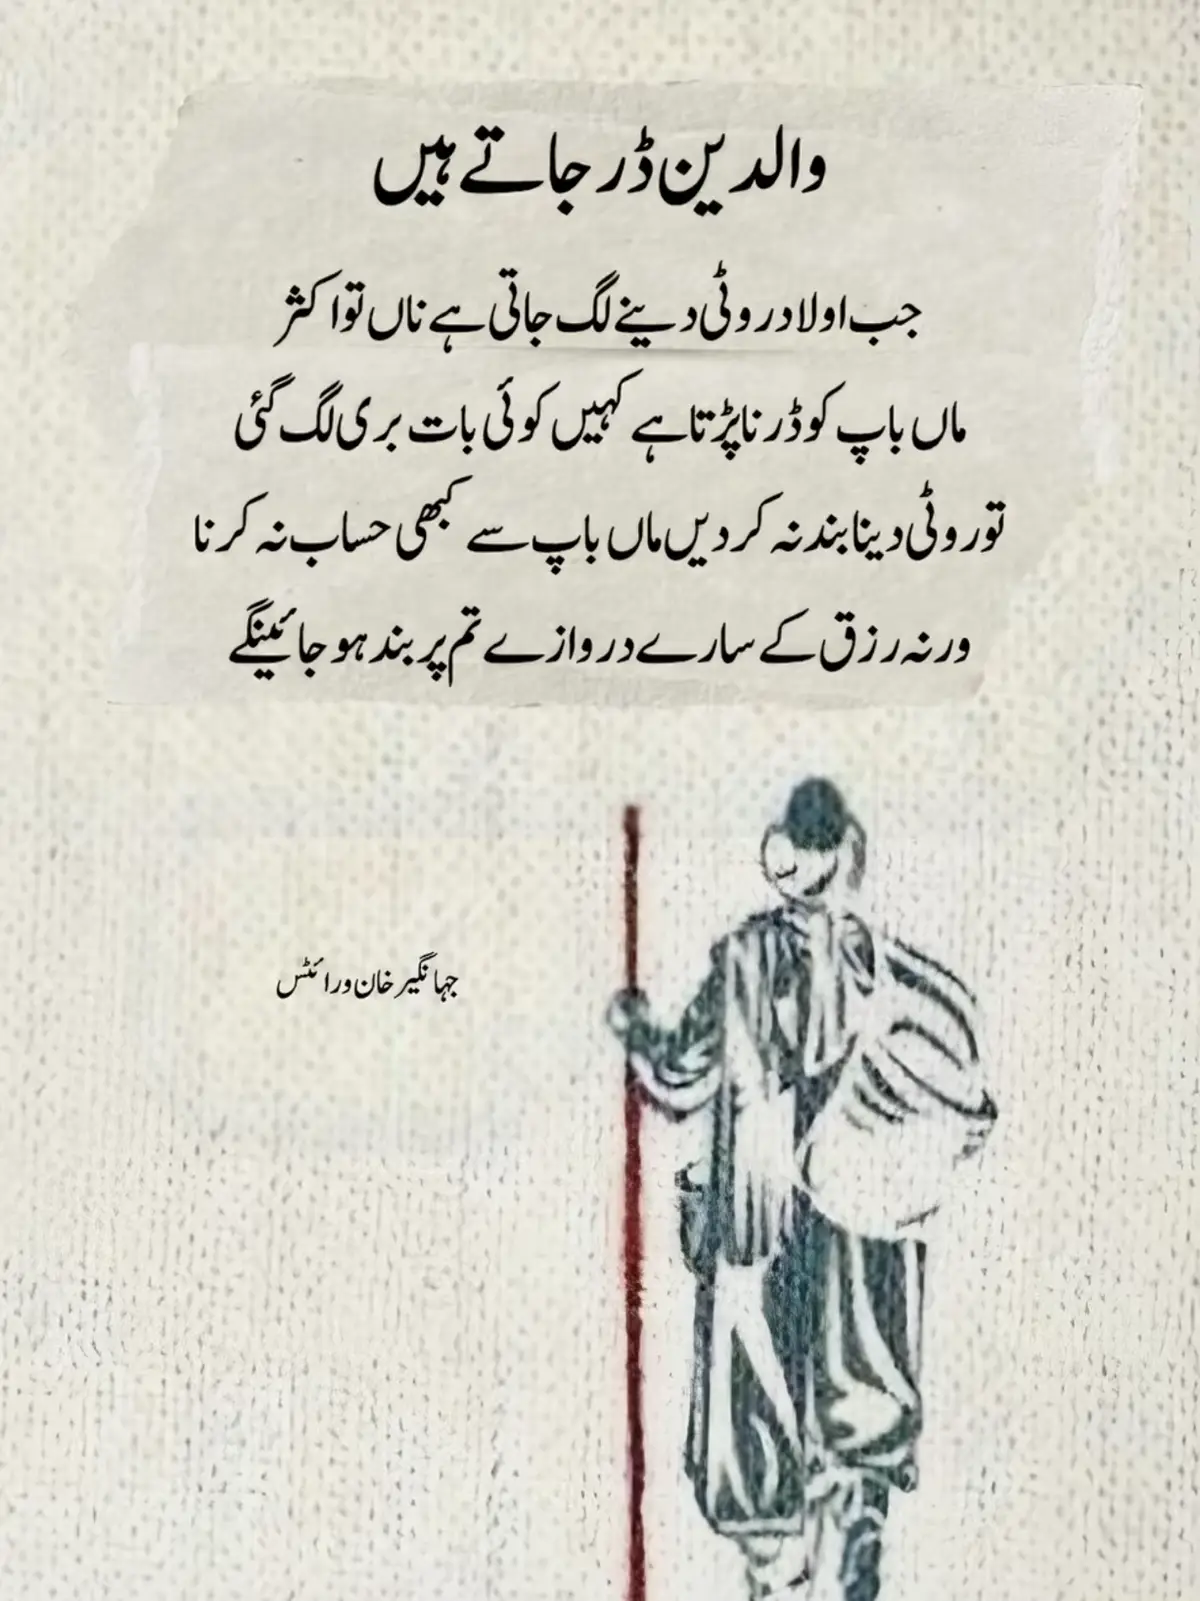 والدین ڈر جاتے ہیں
جب اولاد روٹی دینے لگ جاتی ہے ناں تو اکثر
ماں باپ کو ڈرنا پڑتا ہے کہیں کوئی بات بری لگ گئی
تو روٹی دینا بند نہ کر دیں ماں باپ سے کبھی حساب نہ کرنا
ورنہ رزق کے سارے دروازے تم پر بند ہو جائینگے
جہانگیر خان ورائٹس